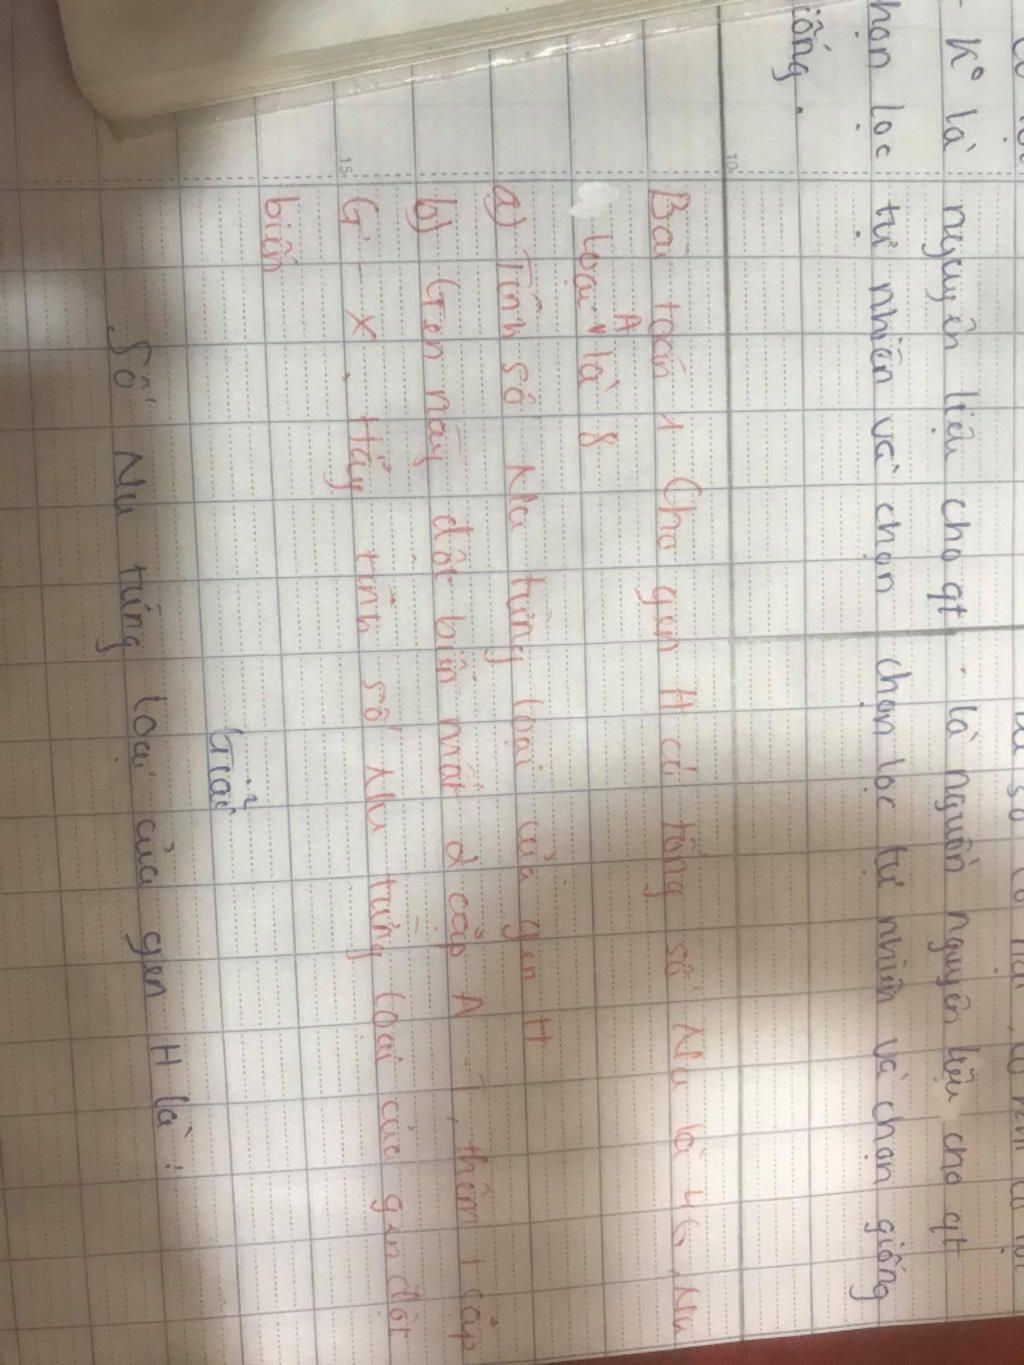 - K° là nguyên liệu cho qt - là nguồn nguyên liệu cho qt
họn lọc tự nhiên và chọn chọn lọc tự nhiên và chọn giống
iống.
Bài toán 1 Cho gen H có tổng số Nu là 46, Nu
loại A là 8
a) Tính số Nu từng loại của gen H
b) Gen này đột biến mất 2 cặp A - T, thêm 1 cặp
G - X. Hãy tính số Nu từng loại của gen đột
biến
Giải
Số Nu từng loại của gen H là: